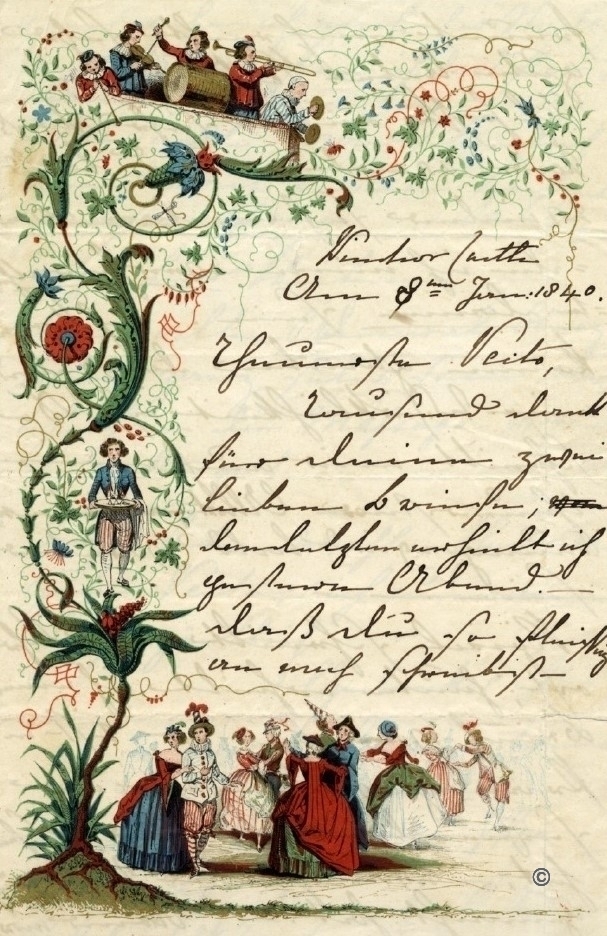 Windsor Castle
Am 8ten Jan: 1840.
Theuerste Veito,
Tausend Dank
für deine zwei
lieben Briefe;
den letzten erhielt ich
gestern Abend. —
daß du so fleißig
an mich schreibst
©